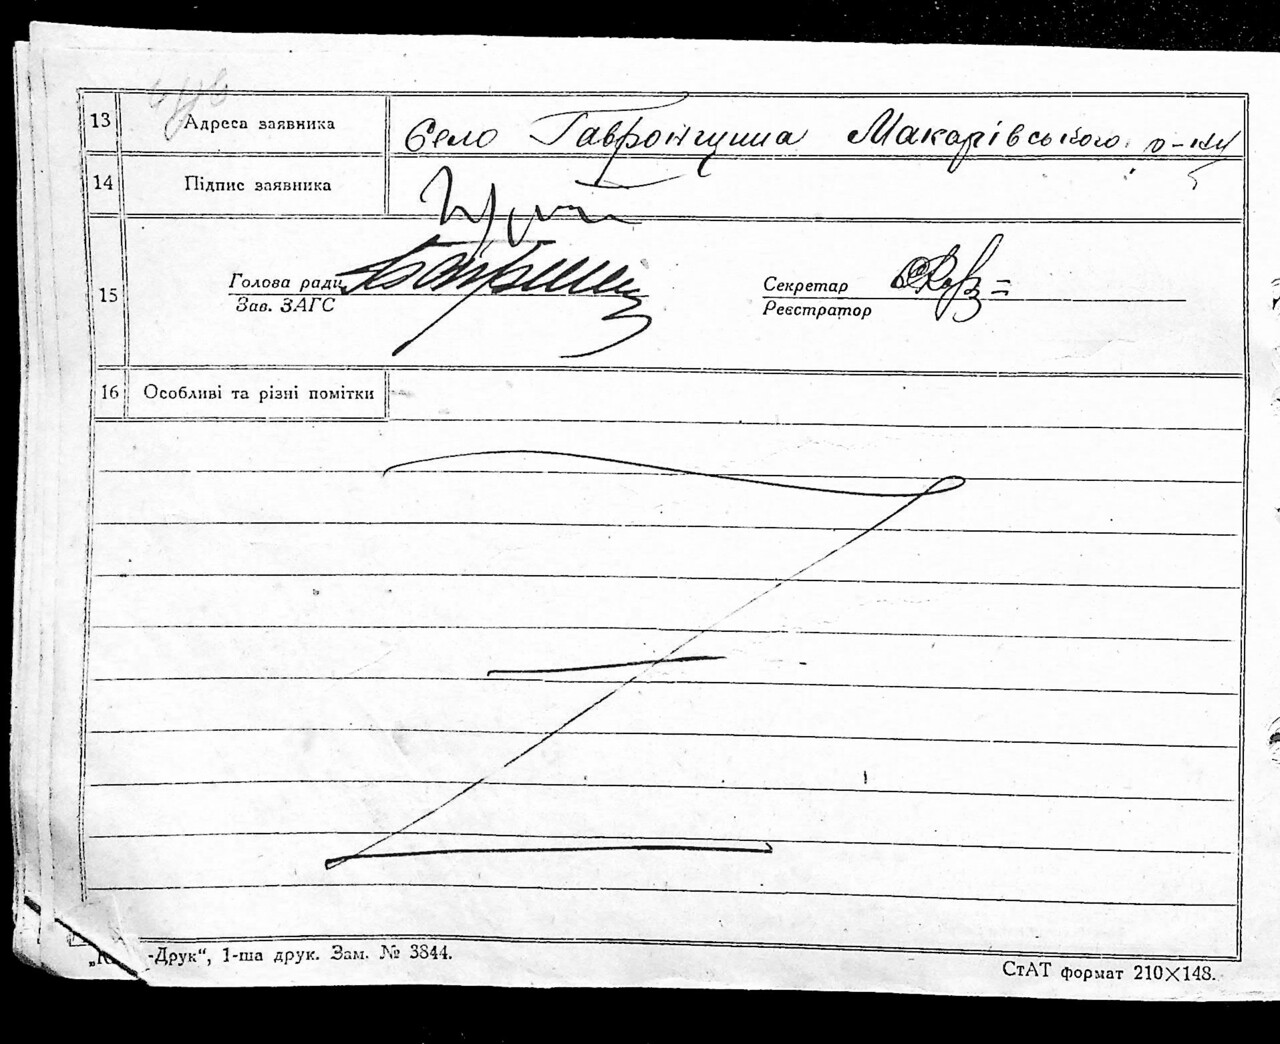 13 Адреса заявника Село Гавронщина Макарівського р-ну
14 Підпис заявника
15 Голова ради Секретар
Зав. ЗАГС Реєстратор
16 Особливі та різні помітки
-Друк“, 1-ша друк. Зам. № 3844.
СтАТ формат 210×148.